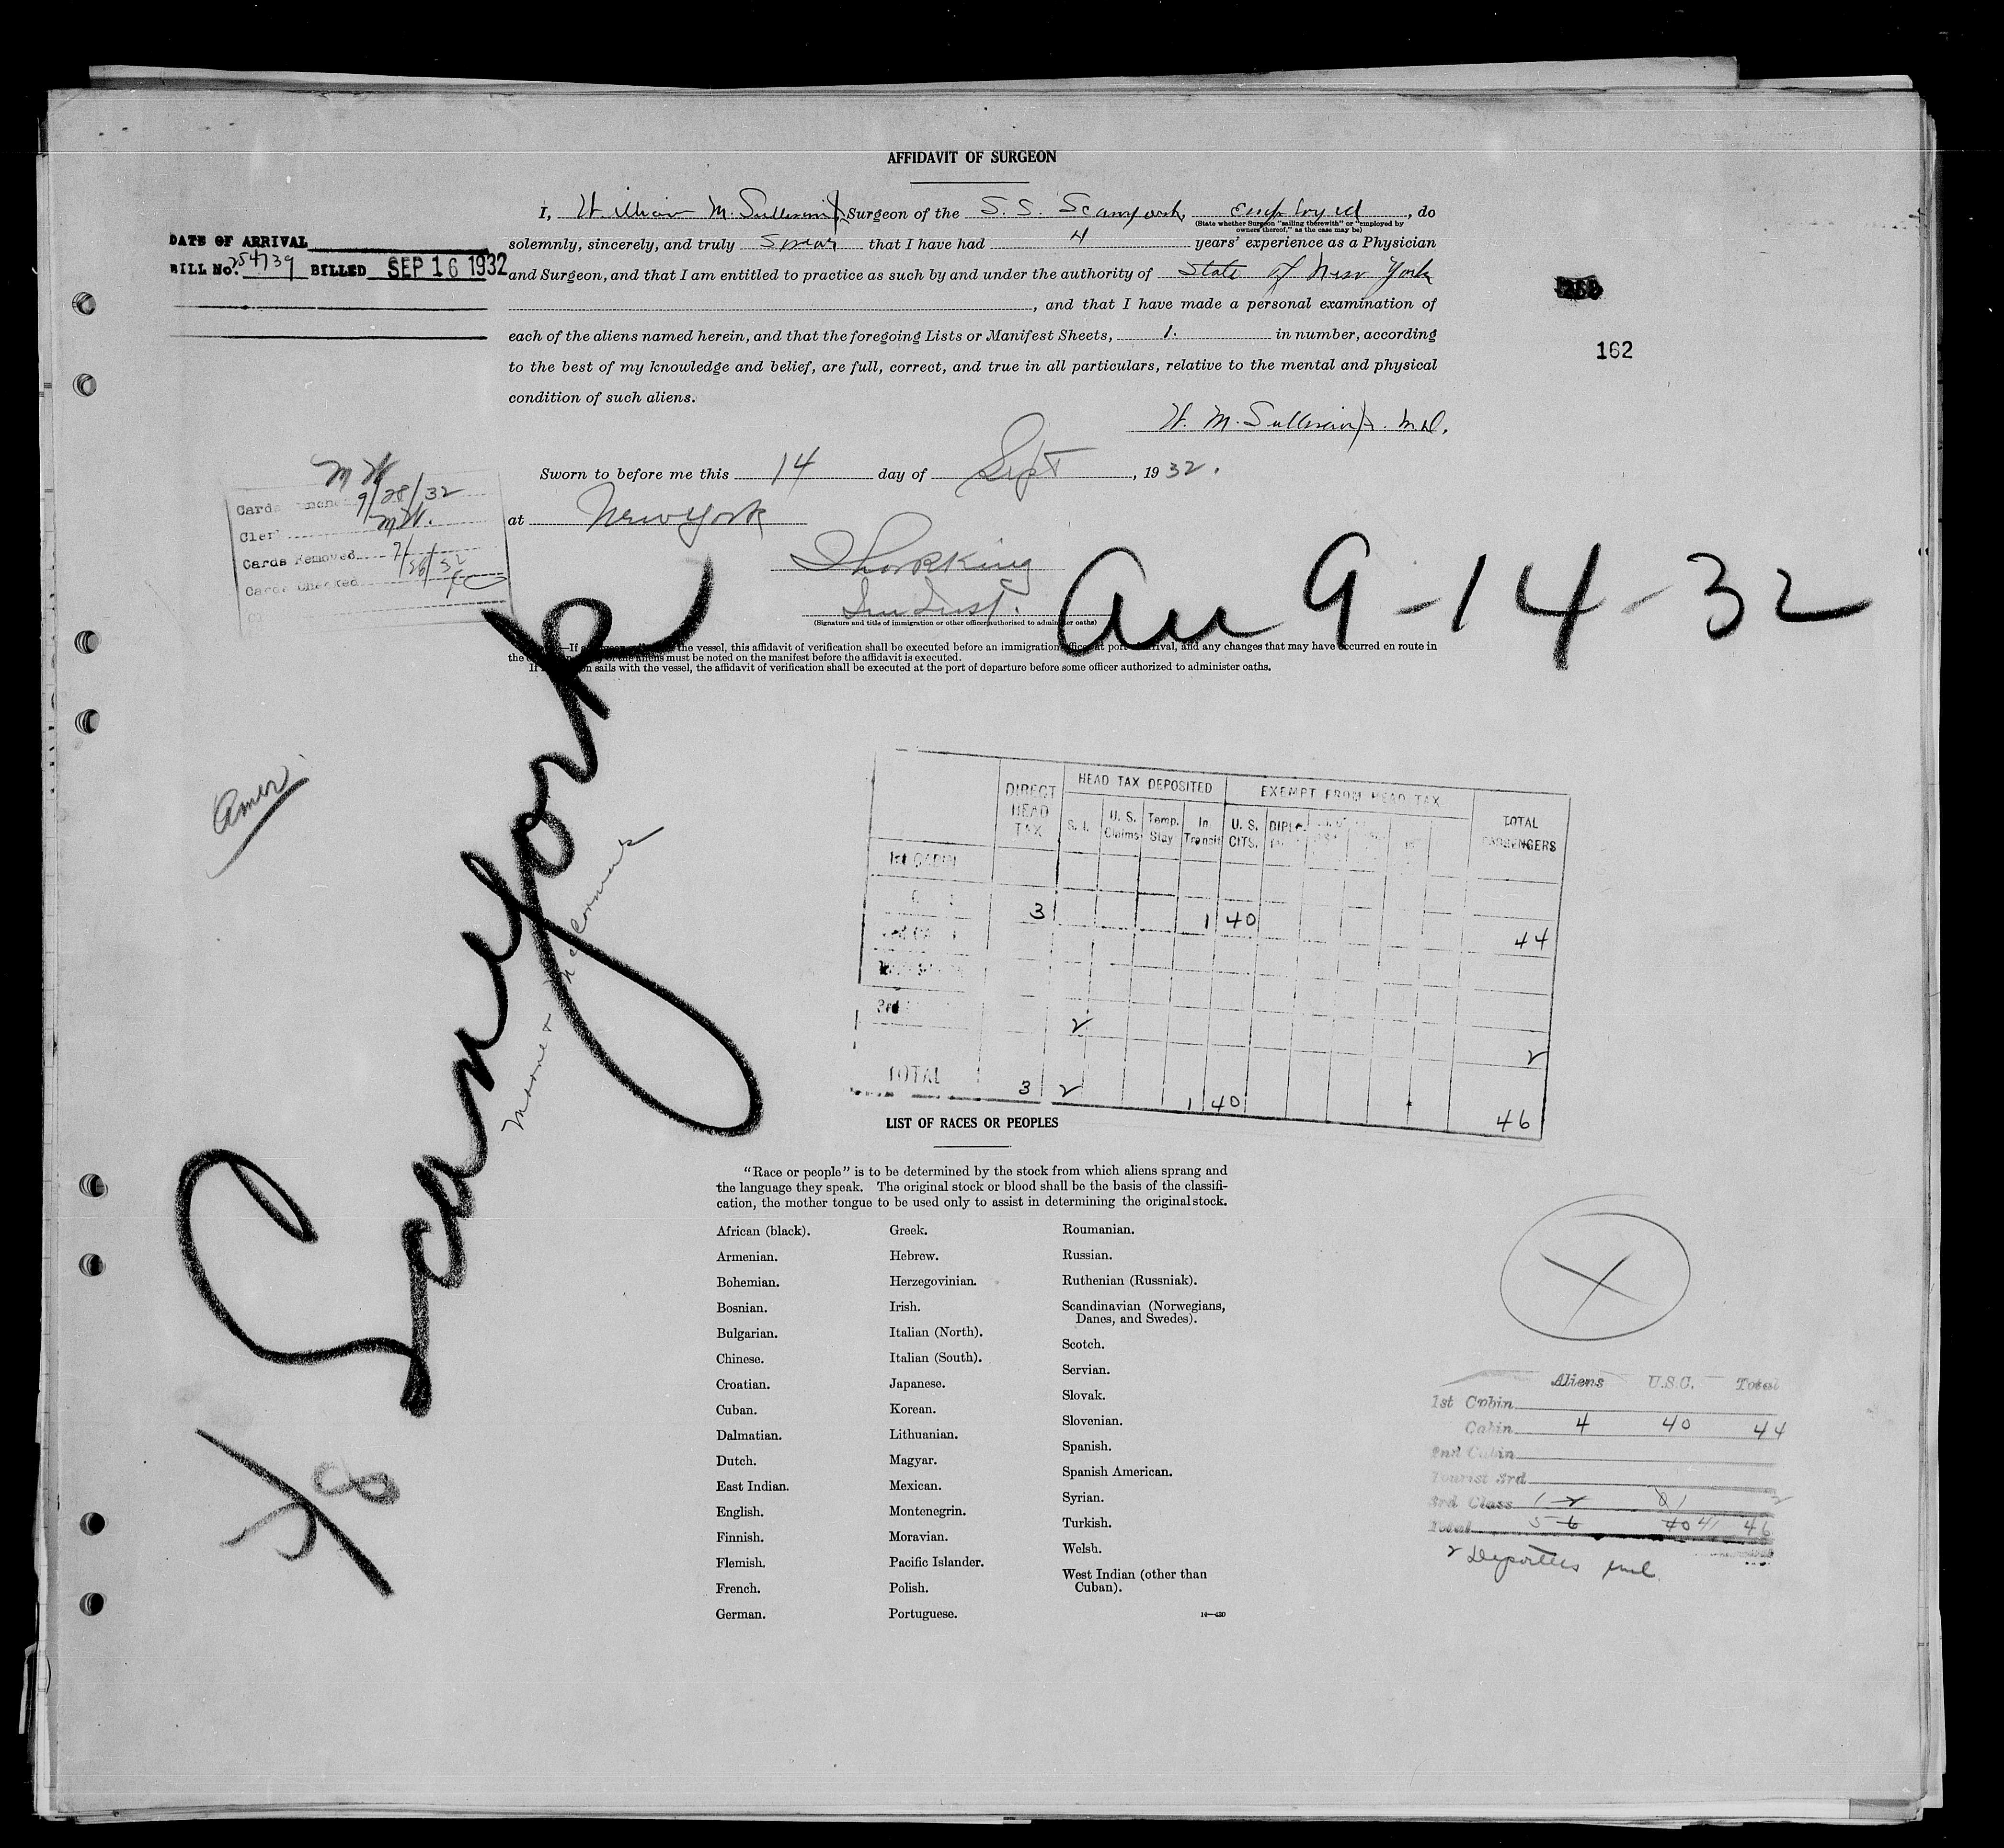 AFFIDAVIT OF SURGEON
I, William M. Sullivan Jr, Surgeon of the S. S. Scanyork, employed, do
(State whether Surgeon "sailing therewith" or "employed by
owners thereof," as the case may be)
solemnly, sincerely, and truly swear that I have had 4 years' experience as a Physician
and Surgeon, and that I am entitled to practice as such by and under the authority of State of New York
, and that I have made a personal examination of
each of the aliens named herein, and that the foregoing Lists or Manifest Sheets, 1. in number, according
to the best of my knowledge and belief, are full, correct, and true in all particulars, relative to the mental and physical
condition of such aliens.
W. M. Sullivan Jr. M.D.
Sworn to before me this 14 day of Sept, 1932.
at New York
(Signature and title of immigration or other officer authorized to administer oaths)
DATE OF ARRIVAL
BILL No. 254739 BILLED SEP 16 1932
162
M W
Cards 9/28/32
Clerk MW.
Cards Removed
Cards Checked
Arr 9-14-32
the vessel, this affidavit of verification shall be executed before an immigration officer at port arrival, and any changes that may have occurred en route in
the aliens must be noted on the manifest before the affidavit is executed.
If sails with the vessel, the affidavit of verification shall be executed at the port of departure before some officer authorized to administer oaths.
Amer
Scanyork
Moore & McCormack
DIRECT HEAD TAX
HEAD TAX DEPOSITED
EXEMPT FROM HEAD TAX
TOTAL PASSENGERS
S. I. U. S. Claims Temp. Stay In Transit U. S. CITS.
1st CABIN
3 1 40 44
3rd
2 2
TOTAL 3 2 1 40 46
LIST OF RACES OR PEOPLES
"Race or people" is to be determined by the stock from which aliens sprang and
the language they speak. The original stock or blood shall be the basis of the classifi-
cation, the mother tongue to be used only to assist in determining the original stock.
African (black).
Armenian.
Bohemian.
Bosnian.
Bulgarian.
Chinese.
Croatian.
Cuban.
Dalmatian.
Dutch.
East Indian.
English.
Finnish.
Flemish.
French.
German.
Greek.
Hebrew.
Herzegovinian.
Irish.
Italian (North).
Italian (South).
Japanese.
Korean.
Lithuanian.
Magyar.
Mexican.
Montenegrin.
Moravian.
Pacific Islander.
Polish.
Portuguese.
Roumanian.
Russian.
Ruthenian (Russniak).
Scandinavian (Norwegians,
Danes, and Swedes).
Scotch.
Servian.
Slovak.
Slovenian.
Spanish.
Spanish American.
Syrian.
Turkish.
Welsh.
West Indian (other than
Cuban).
14—430
Aliens U.S.C. Total
1st Cabin
Cabin 4 40 44
2nd Cabin
Tourist 3rd
3rd Class 1 2 0 1 2
Total 5 6 40 41 46
2 Deportees incl.